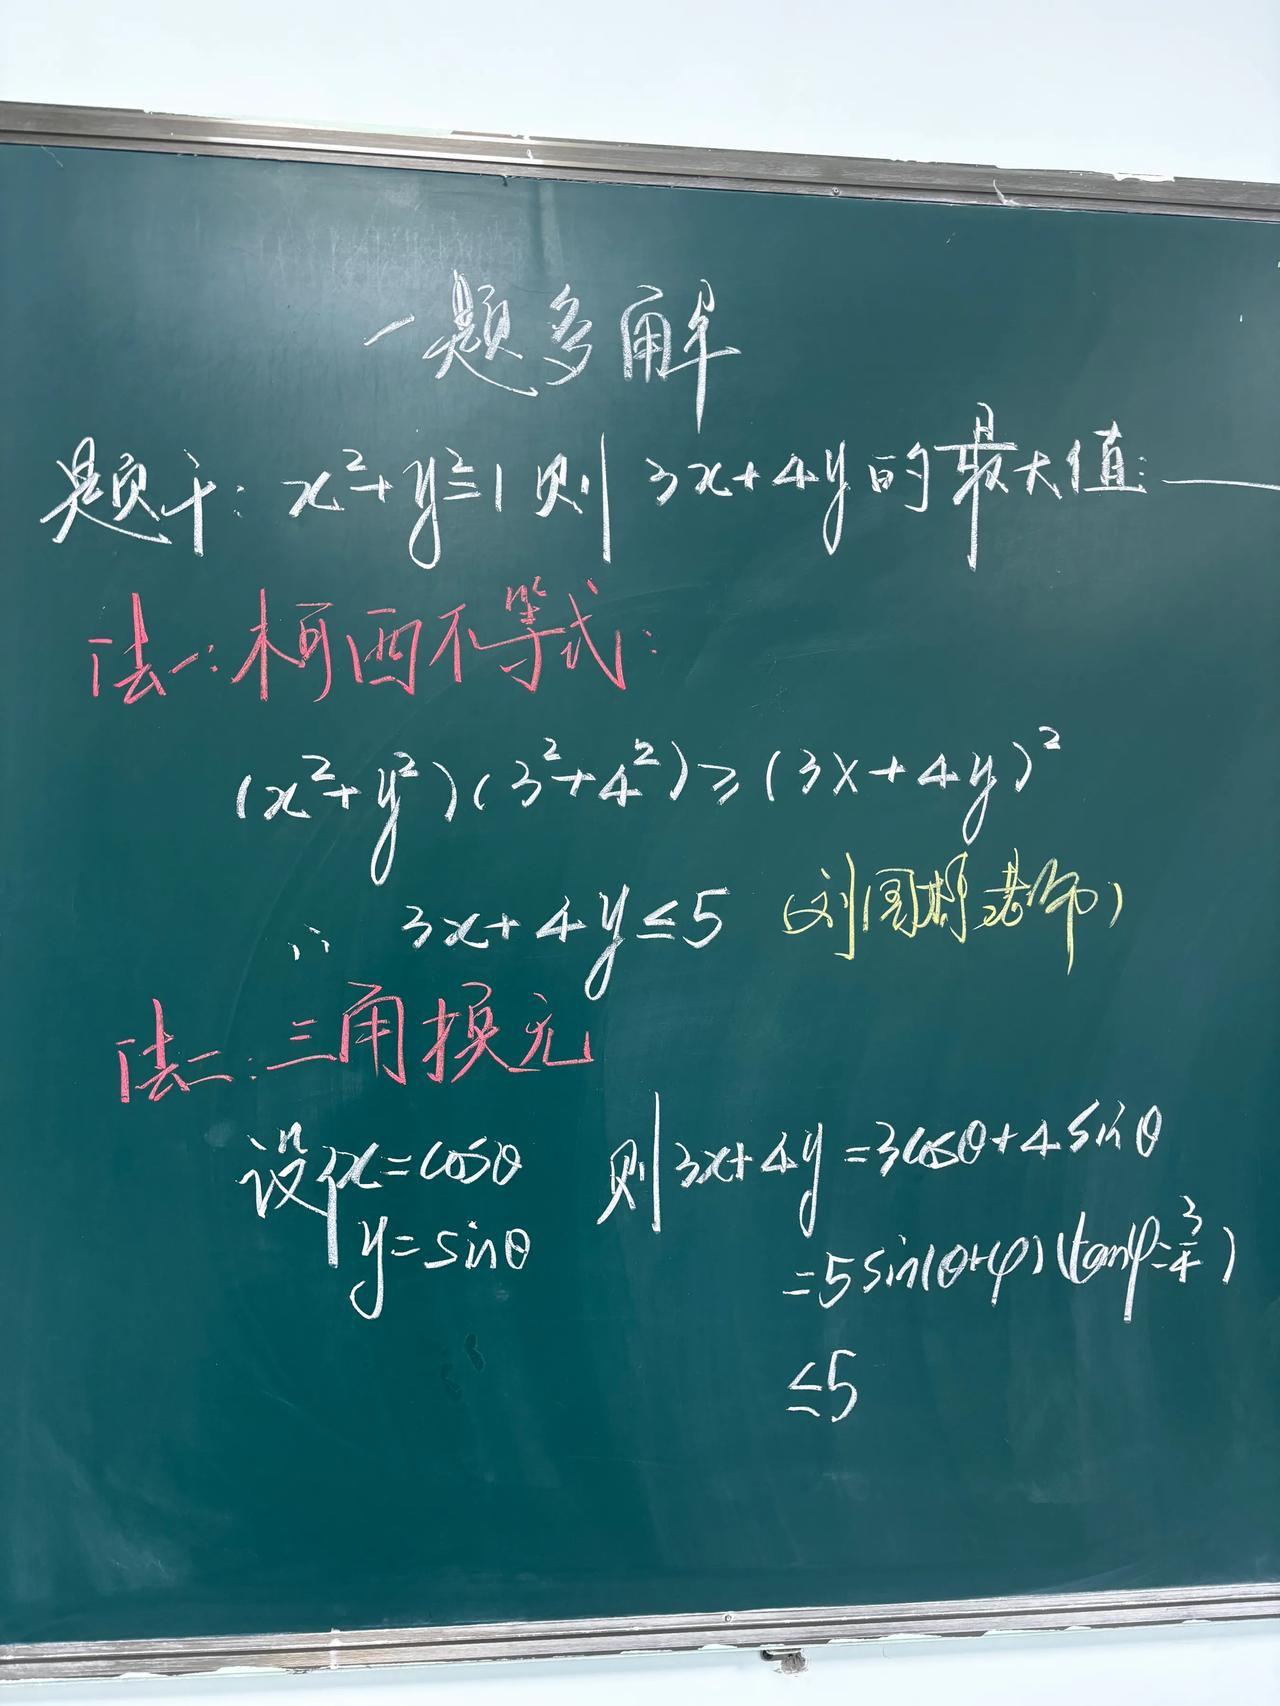 一题多解
题干: x²+y²=1 则 3x+4y 的最大值: ____
法一: 柯西不等式:
(x²+y²)(3²+4²)≥(3x+4y)²
∴ 3x+4y≤5 (刘国老师)
法二: 三角换元
设{x=cosθ 则 3x+4y=3cosθ+4sinθ
y=sinθ =5sin(θ+φ)(tanφ=3/4)
≤5